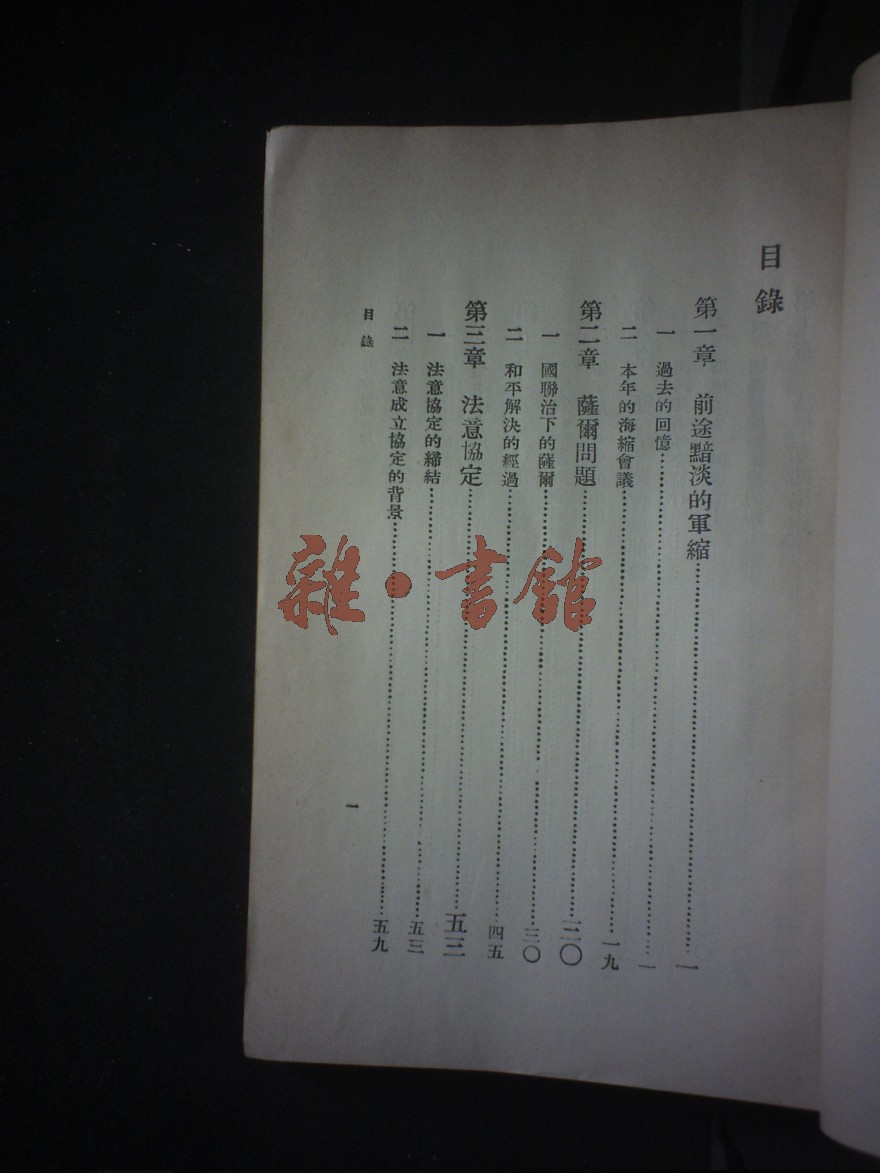 目錄
第一章 前途黯淡的軍縮……一
一 過去的回憶……一
二 本年的海縮會議……一九
第二章 薩爾問題……三〇
一 國聯治下的薩爾……三〇
二 和平解決的經過……四五
第三章 法意協定……五三
一 法意協定的締結……五三
二 法意成立協定的背景……五九
目錄
一
雜·書館